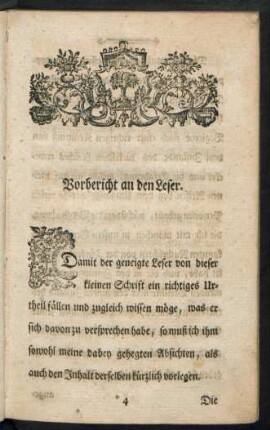 Vorbericht an den Leser.
Damit der geneigte Leser von dieser
kleinen Schrift ein richtiges Ur-
theil fällen und zugleich wissen möge, was er
sich davon zu versprechen habe, so muß ich ihm
sowohl meine dabey gehegten Absichten, als
auch den Inhalt derselben kürzlich vorlegen.
4 Die